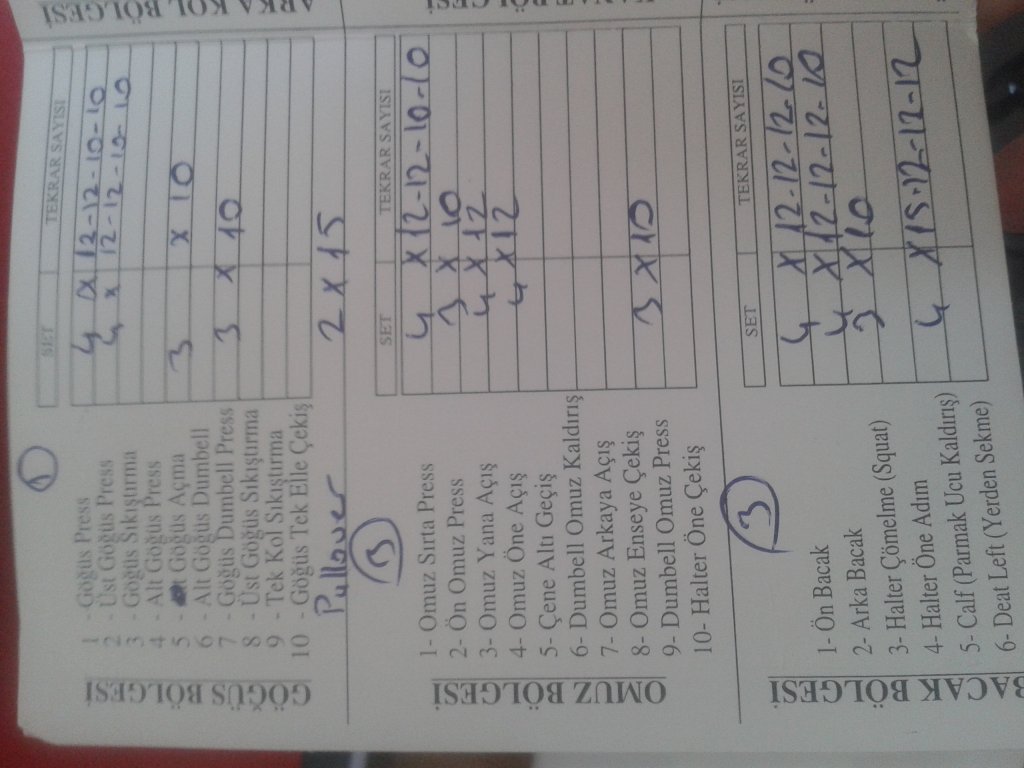 GÖĞÜS BÖLGESİ
1
SET TEKRAR SAYISI
1 - Göğüs Press 4 x 12-12-10-10
2 - Üst Göğüs Press 4 x 12-12-10-10
3 - Göğüs Sıkıştırma
4 - Alt Göğüs Press
5 - Göğüs Açma 3 x 10
6 - Alt Göğüs Dumbell
7 - Göğüs Dumbell Press 3 x 10
8 - Üst Göğüs Sıkıştırma
9 - Tek Kol Sıkıştırma
10 - Göğüs Tek Elle Çekiş
Pullover 2 x 15
OMUZ BÖLGESİ
3
SET TEKRAR SAYISI
1- Omuz Sırta Press 4 x 12-12-10-10
2- Ön Omuz Press 3 x 10
3- Omuz Yana Açış 4 x 12
4- Omuz Öne Açış 4 x 12
5- Çene Altı Geçiş
6- Dumbell Omuz Kaldırış
7- Omuz Arkaya Açış
8- Omuz Enseye Çekiş 3 x 10
9- Dumbell Omuz Press
10- Halter Öne Çekiş
BACAK BÖLGESİ
3
SET TEKRAR SAYISI
1- Ön Bacak 4 x 12-12-12-10
2- Arka Bacak 4 x 12-12-12-10
3- Halter Çömelme (Squat) 3 x 10
4- Halter Öne Adım
5- Calf (Parmak Ucu Kaldırış) 4 x 15-12-12-12
6- Deat Left (Yerden Sekme)
ARKA KOL BÖLGESİ
BÖLGESİ